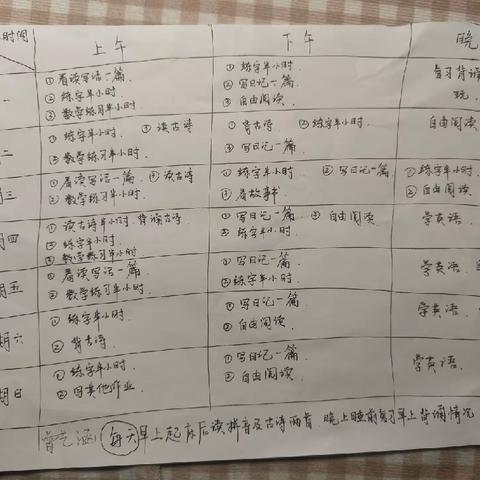 时间
上午
下午
晚
一
①看读写话一篇.
②练字半小时.
③数学练习半小时.
①练字半小时.
②写日记一篇.
③自由阅读.
复习背诵
玩.
二
①练字半小时. ③读古诗
②数学练习半小时.
①背古诗 ②练字半小时.
③写日记一篇.
自由阅读
期三
①看读写话一篇. ③读古诗
②数学练习半小时.
①练字半小时. ②写日记一篇.
③看故事书
①练字半小时.
②自由阅读.
期四
①读古诗半小时.背读古诗.
②练字半小时.
③数学练习半小时.
①写日记一篇. ③自由阅读
②练字半小时.
学英语.
期五
①看读写话一篇.
②数学练习半小时.
①写日记一篇.
②练字半小时.
学英语.
期六
①练字半小时.
②背古诗.
①写日记一篇
②自由阅读.
学英语.
期日
①练字半小时.
②写其他作业.
①写日记一篇.
②自由阅读.
学英语.
曾艺涵: 每天早上起床后读拼音及古诗两首 晚上睡前复习早上背诵情况